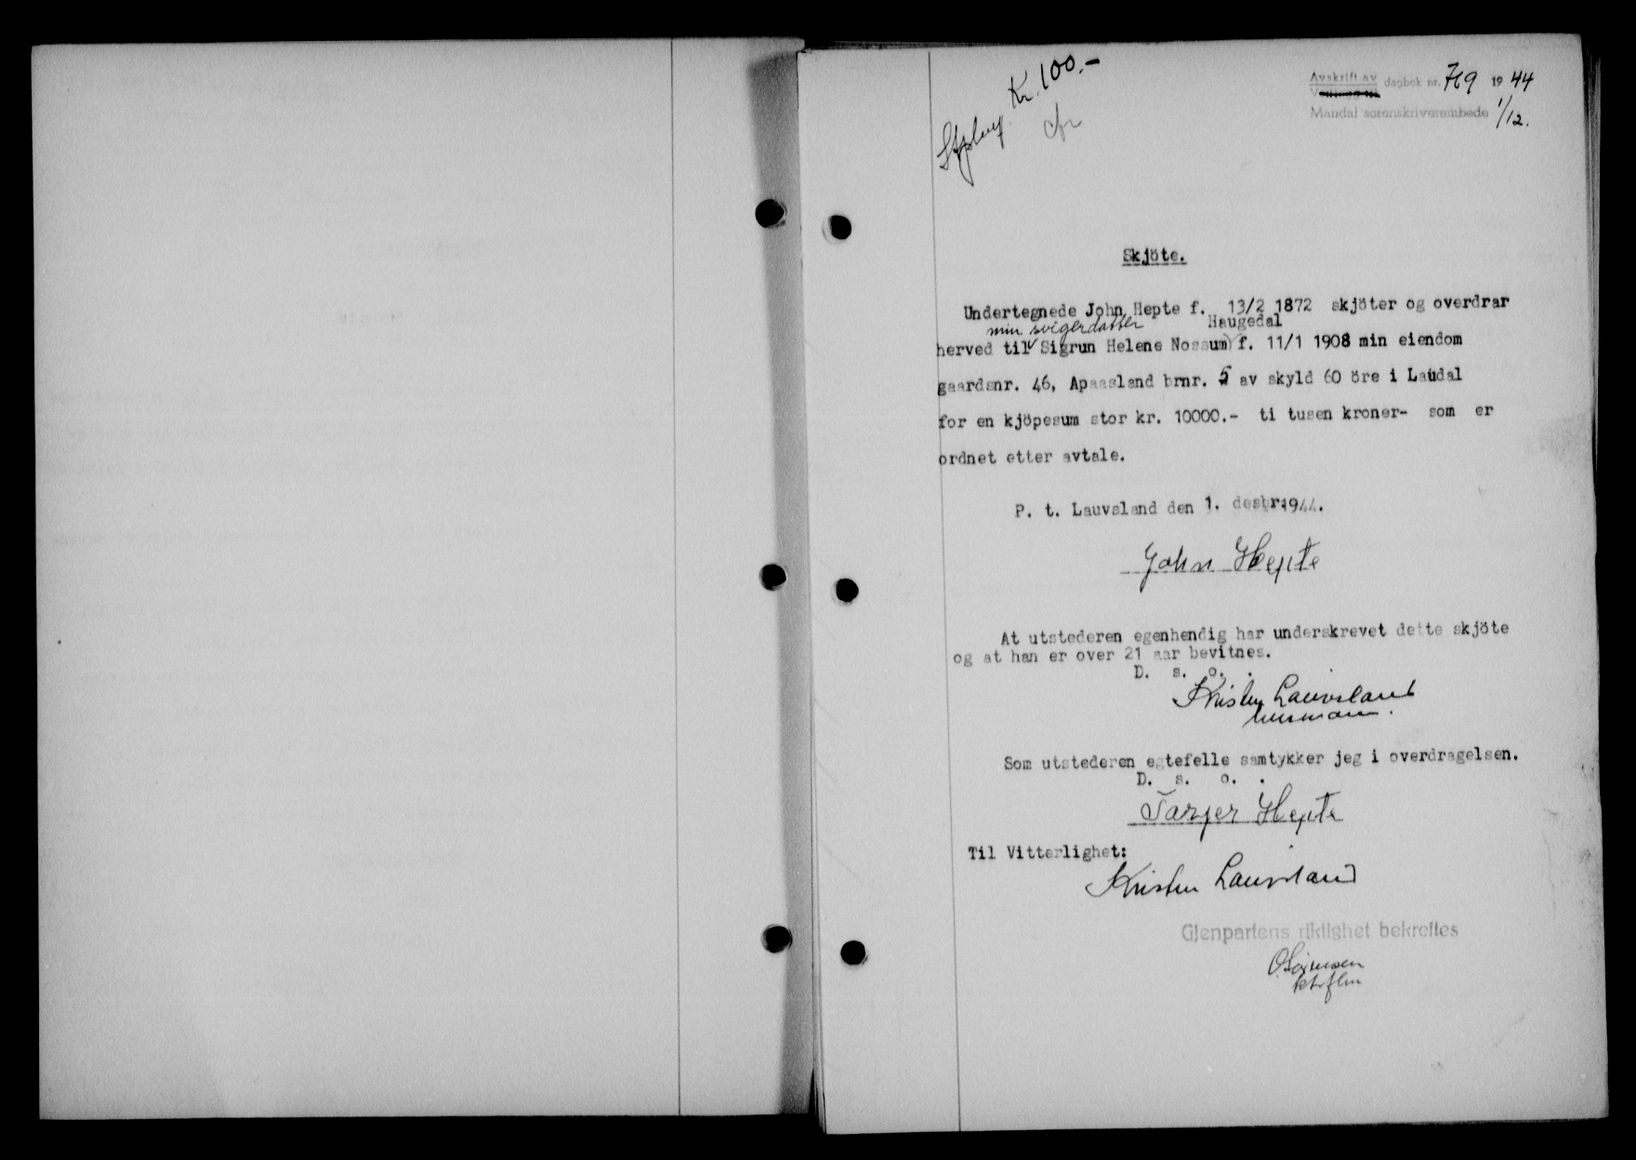 Stpl.avg. Kr. 100.-
Avskrift av dagbok nr. 719 1944
Mandal sorenskriverembede 1/12.
Skjöte.
Undertegnede John Hepte f. 13/2 1872 skjöter og overdrar
min svigerdatter Haugedal
herved til Sigrun Helene Nossum f. 11/1 1908 min eiendom
gaardsnr. 46, Apaasland brnr. 5 av skyld 60 öre i Laudal
for en kjöpesum stor kr. 10000.- ti tusen kroner- som er
ordnet etter avtale.
P. t. Lauvsland den 1. desbr.1944.
John Hepte
At utstederen egenhendig har underskrevet dette skjöte
og at han er over 21 aar bevitnes.
D. s. o. .
Kristen Lauvsland
lensmann.
Som utstederen egtefelle samtykker jeg i overdragelsen.
D. s. o. .
Tarjer Hepte
Til Vitterlighet:
Kristen Lauvsland
Gjenpartens riktighet bekreftes
O Sørensen
ktrflm